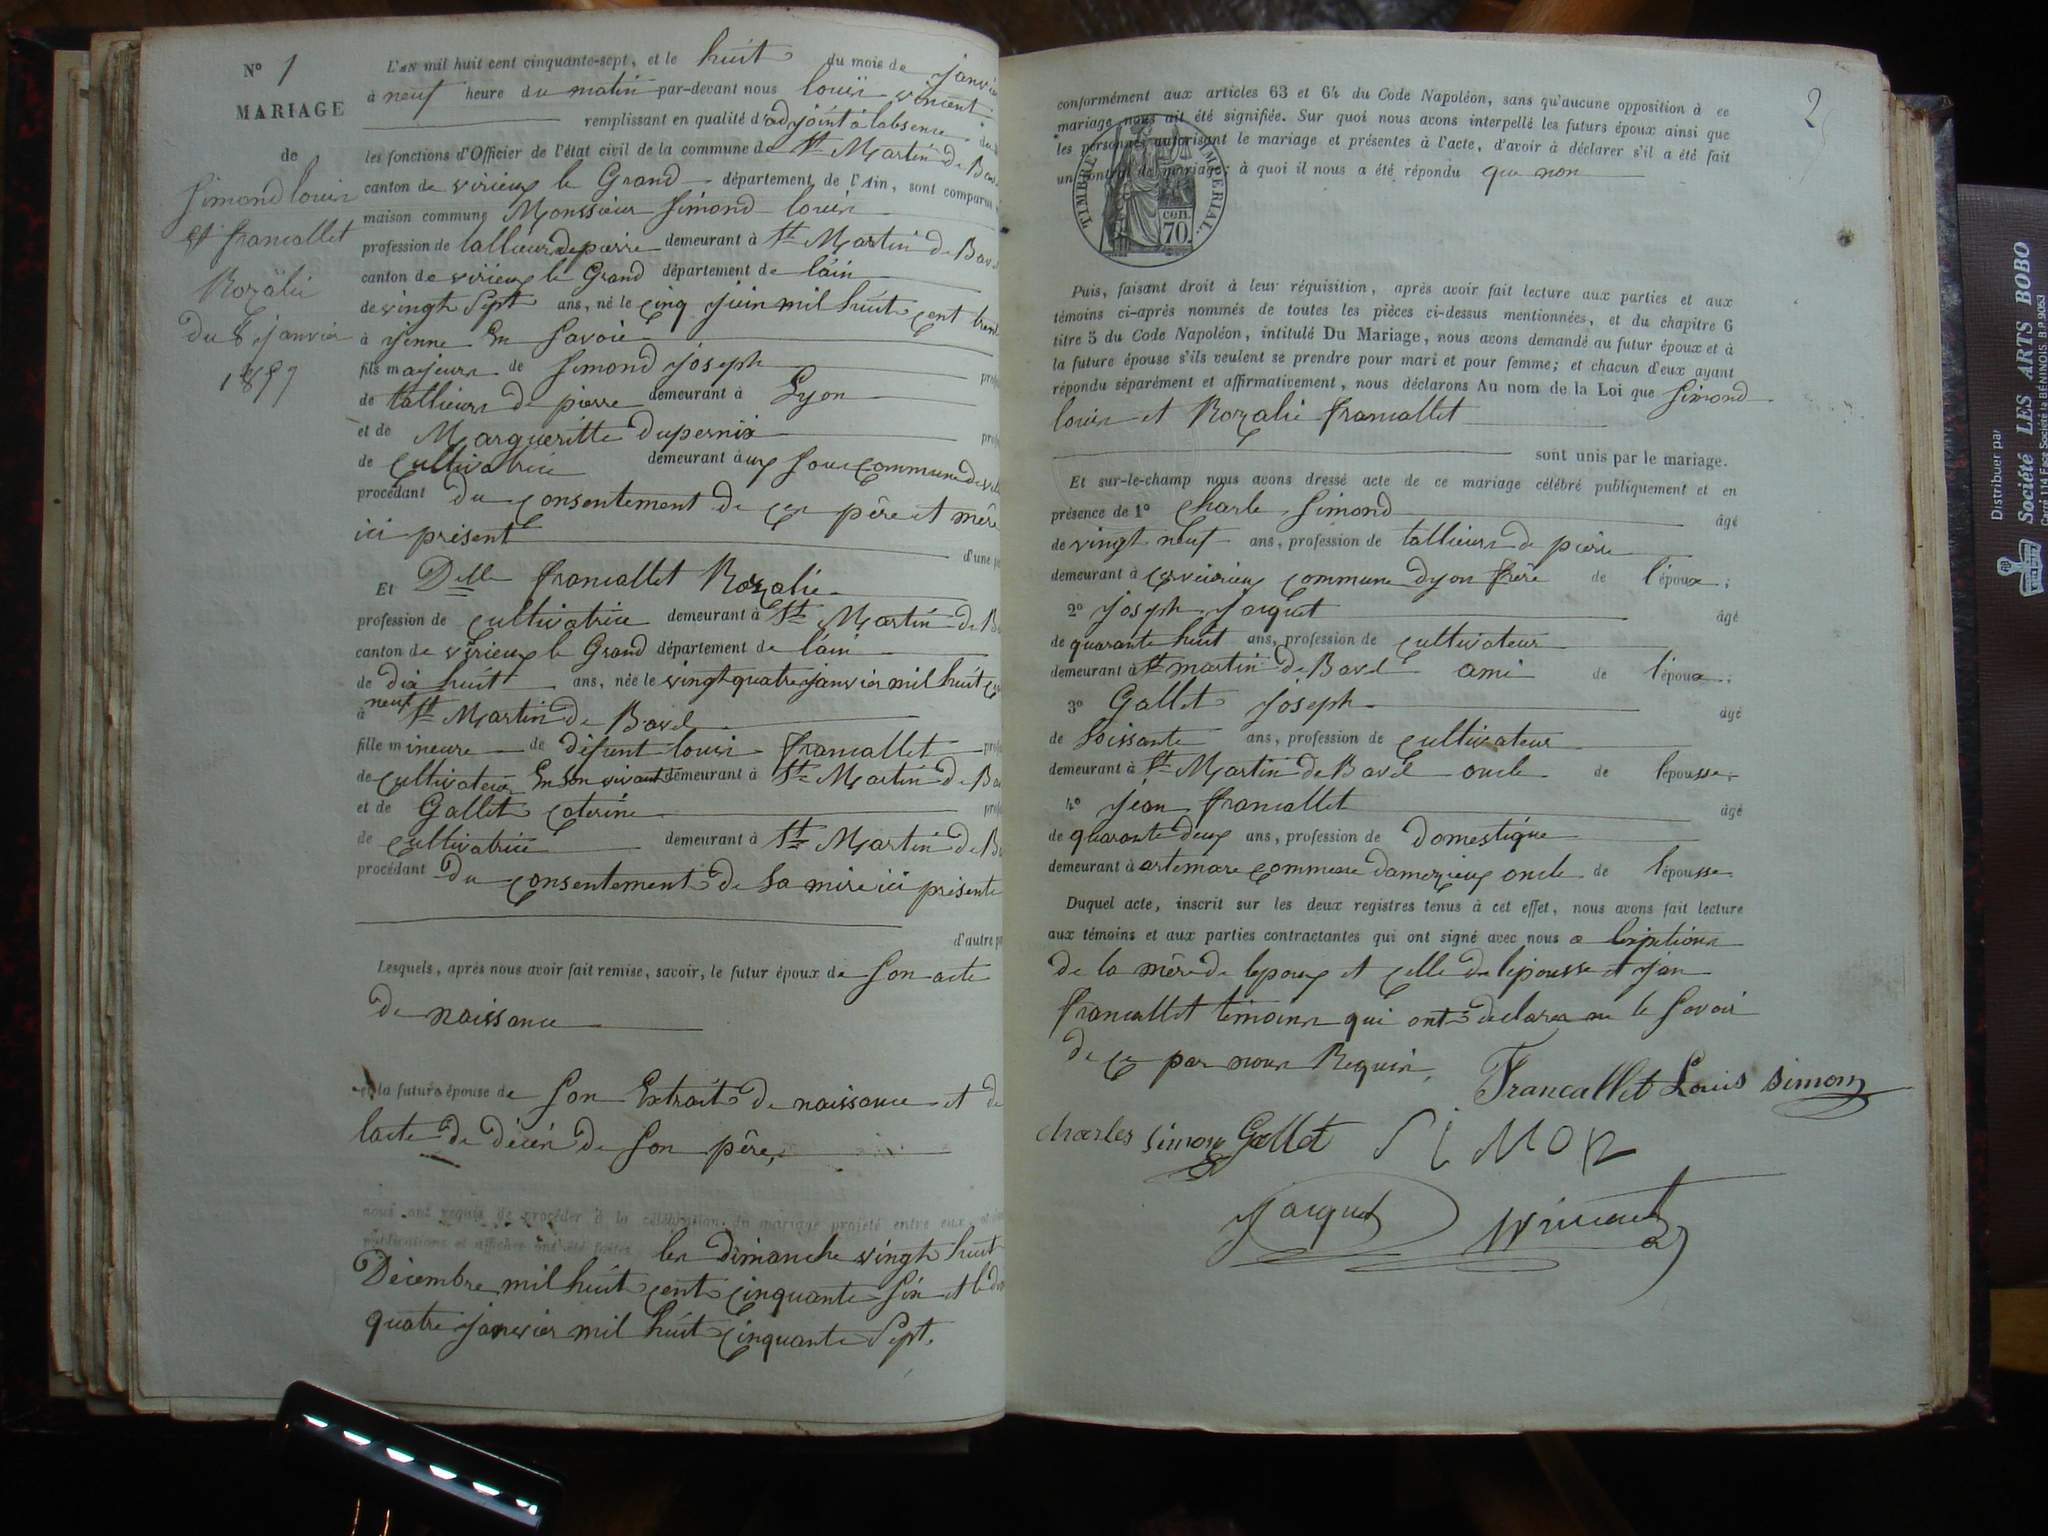 N° 1
MARIAGE
de
Simond louis
et francallet
Rozalie
du 8 janvier
1857
L'AN mil huit cent cinquante-sept, et le huit du mois de janvier
à neuf heure du matin par-devant nous louis vincent
remplissant en qualité d'adjoint à labsence
les fonctions d'Officier de l'état civil de la commune de St Martin De Bavel
canton de virieux le Grand département de l'Ain, sont comparus
maison commune Monssieur Simond louis
profession de tallieur de pierre demeurant à St Martin De Bavel
canton de virieux le Grand département de láin
de vingt Sept ans, né le cinq juin mil huit cent trente
à yenne En Savoie
fils majeur de Simond joseph
de tallieurs de pierre demeurant à Lyon
et de Margueritte Dupernix
de cultivatrice demeurant à commune de
procédant du consentement de ces père et mère
ici présent d'une
Et Delle francallet Rozalie
profession de cultivatrice demeurant à St Martin De B
canton de virieux le Grand département de láin
de dix huit ans, née le vingt quatre janvier mil huit
neuf
à St Martin De Bavel
fille mineure de défunt louis francallet
de cultivateur En son vivant demeurant à St Martin De Ba
et de Gallet caterine
de cultivatrice demeurant à St Martin De B
procédant du consentement de sa mère ici présente
d'autre
Lesquels, après nous avoir fait remise, savoir, le futur époux de Son acte
de naissance
et la future épouse de Son Extrait de naissance et de
lacte de décés de Son père,
nous ont requis de procéder à la célébration du mariage projeté entre eux,
publications et affiches ont été faites les dimanche vingt huit
Décembre mil huit cent cinquante Six et le
quatre janvier mil huit cinquante Sept.
2
conformément aux articles 63 et 64 du Code Napoléon, sans qu'aucune opposition à ce
mariage nous ait été signifiée. Sur quoi nous avons interpellé les futurs époux ainsi que
les personnes autorisant le mariage et présentes à l'acte, d'avoir à déclarer s'il a été fait
un contrat de mariage; à quoi il nous a été répondu que non
TIMBRE IMPERIAL.
cen.
70.
Puis, faisant droit à leur réquisition, après avoir fait lecture aux parties et aux
témoins ci-après nommés de toutes les pièces ci-dessus mentionnées, et du chapitre 6
titre 5 du Code Napoléon, intitulé Du Mariage, nous avons demandé au futur époux et à
la future épouse s'ils veulent se prendre pour mari et pour femme; et chacun d'eux ayant
répondu séparément et affirmativement, nous déclarons Au nom de la Loi que Simond
louis et Rozalie francallet
sont unis par le mariage.
Et sur-le-champ nous avons dressé acte de ce mariage célébré publiquement et en
présence de 1° Charle Simond âgé
de vingt neuf ans, profession de tallieurs de pierre
demeurant à commune dyon frère de l'époux;
2° joseph jarquet âgé
de quarante huit ans, profession de cultivateur
demeurant à St martin De Bavel ami de l'époux;
3° Gallet joseph âgé
de Soissante ans, profession de cultivateur
demeurant à St Martin De Bavel oncle de lépousse;
4° jean francallet âgé
de quarante deux ans, profession de Domestique
demeurant à artemare commune damezieux oncle de lépousse
Duquel acte, inscrit sur les deux registres tenus à cet effet, nous avons fait lecture
aux témoins et aux parties contractantes qui ont signé avec nous a
de la mère de lepoux et celle de lepousse et jan
francallet témoins qui ont déclarer ne le savoir
de ce par nous Requis,
Francallet Louis Simon
charles simon Gallet SiMON
Jarquet Vincent
Distribuer par
Société LES ARTS BOBO
Carré 114 Face Société la BÉNINOIS. B.P. 9063